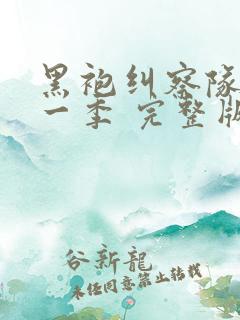 黑袍纠察队
一季 完整版
谷新龍
未经同意禁止转载